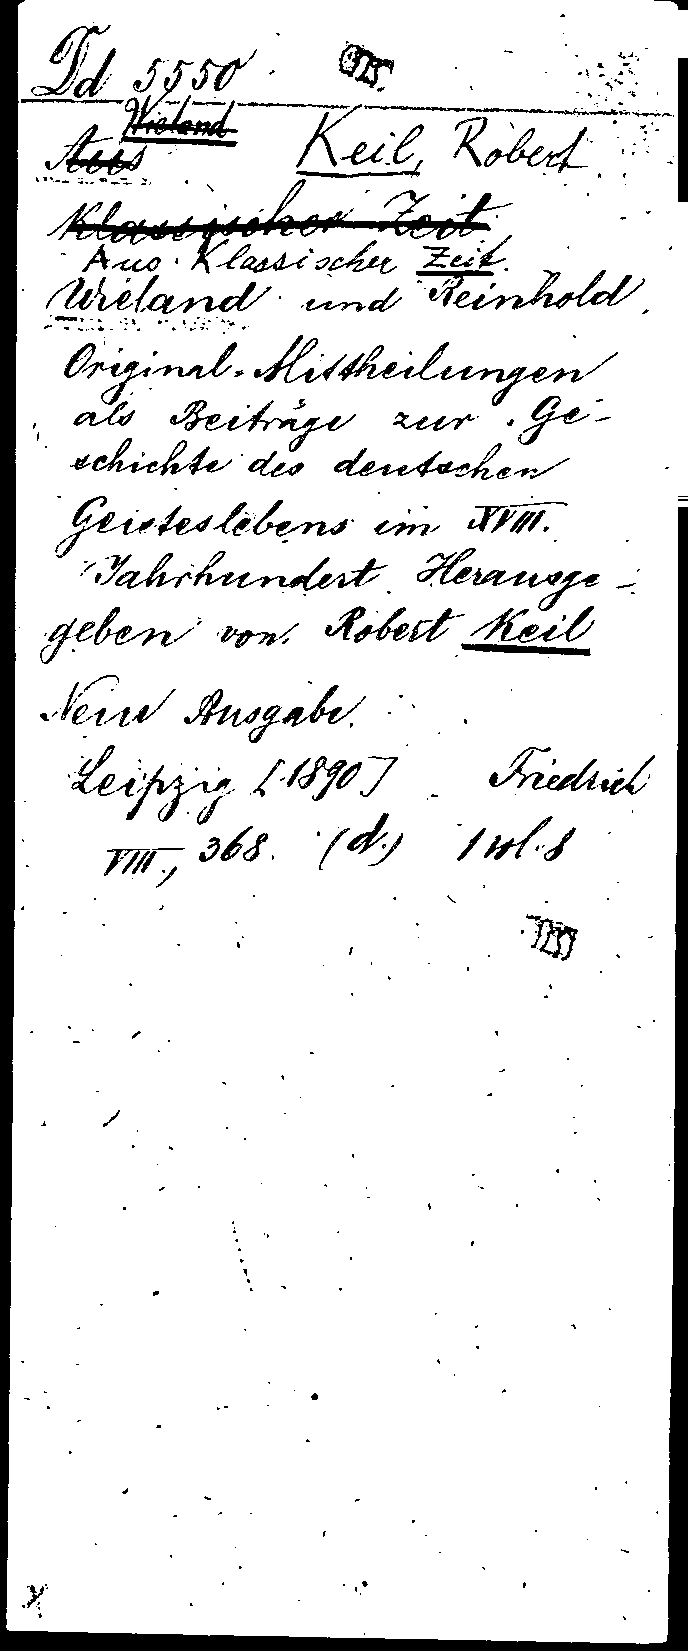 Dd 5550
Wieland
Aus Keil, Robert
Klassischer Zeit
Aus Klassischer Zeit.
Wieland und Reinhold.
Original-Mittheilungen
als Beiträge zur Ge-
schichte des deutschen
Geisteslebens im XVIII.
Jahrhundert. Herausge-
geben von Robert Keil
Neue Ausgabe.
Leipzig [1890] Friedrich
VIII, 368. (d.) 1 vol. 8